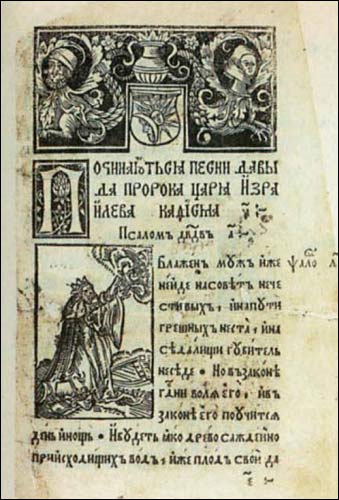 Починаються песни Давы
да пророка царꙗ Изра
илева каѳисма а҃
Псаломъ дв҃дъ а҃
Блаженъ мужъ иже
нейде насоветъ нече
стивыхъ, инапути
грешныхъ неста, ина
седалищи губитель
неседе • Но въ законе
воля его, ивъ
законе его поучится
день инощъ • Ибудеть ꙗко древо сажденно
приисходищихъ водъ, иже плодъ свой да